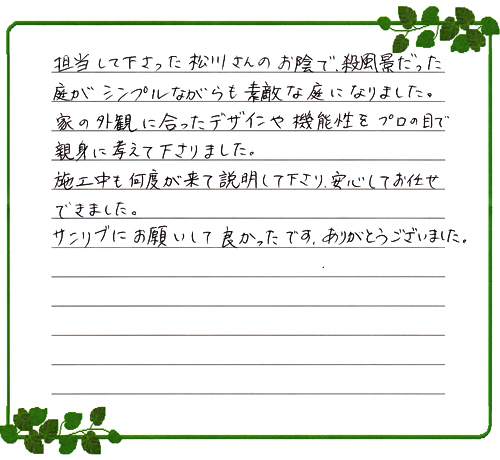 担当して下さった松川さんのお陰で、殺風景だった
庭がシンプルながらも素敵な庭になりました。
家の外観に合ったデザインや機能性をプロの目で
親身に考えて下さりました。
施工中も何度か来て説明して下さり、安心してお任せ
できました。
サンリブにお願いして良かったです。ありがとうございました。